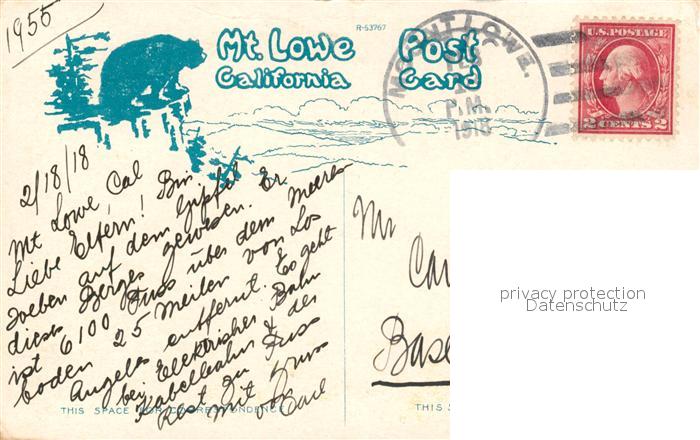 1955
R-53767
Mt. Lowe Post
California Card
MOUNT LOWE.
P.M.
1918
U.S. POSTAGE
2 CENTS 2
2/18/18
Mt Lowe, Cal
Liebe Eltern! Bin
soeben auf dem Gipfel
dieses Berges gewesen. Er
ist 6100 Fuss über dem Meeres
boden 25 Meilen von Los
Angeles entfernt. Es geht
bei Elektrisher Bahn
Kabelbahn & der
Rest zu Fuss
mit Gruss
Carl
THIS SPACE FOR CORRESPONDENCE
Mr
Car
Base
THIS S
privacy protection
Datenschutz